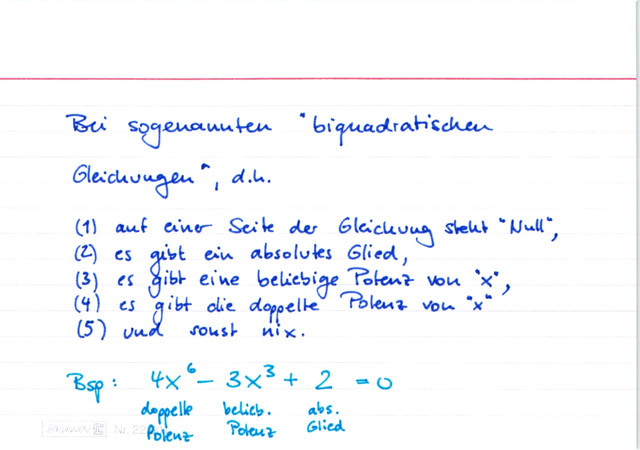 Bei sogenannten "biquadratischen
Gleichungen", d.h.
(1) auf einer Seite der Gleichung steht "Null",
(2) es gibt ein absolutes Glied,
(3) es gibt eine beliebige Potenz von "x",
(4) es gibt die doppelte Potenz von "x"
(5) und sonst nix.
Bsp: 4x⁶ - 3x³ + 2 = 0
doppelte belieb. abs.
Potenz Potenz Glied
Nr. 22